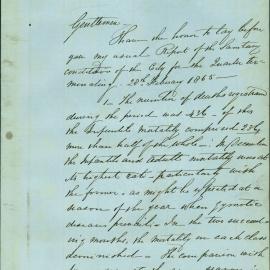 Gentlemen
I have the honor to lay before
you my usual Report of the Sanitary
condition of the City for the Quarter ter-
minating 20th February 1865—
The number of deaths registered
during the period was 436 — of this
the Infantile mortality comprised 236
more than half of the whole — In December
the Infantile and Adult mortality was at
its highest rate — particularly with
the former — as might be expected at a
season of the year when zymotic
diseases prevail — In the two succeed-
ing months, the mortality in each class
diminished — The comparison with